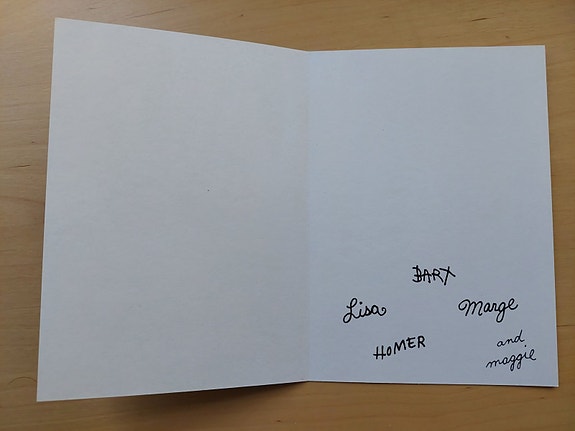 BART
Lisa
Marge
HOMER
and
maggie